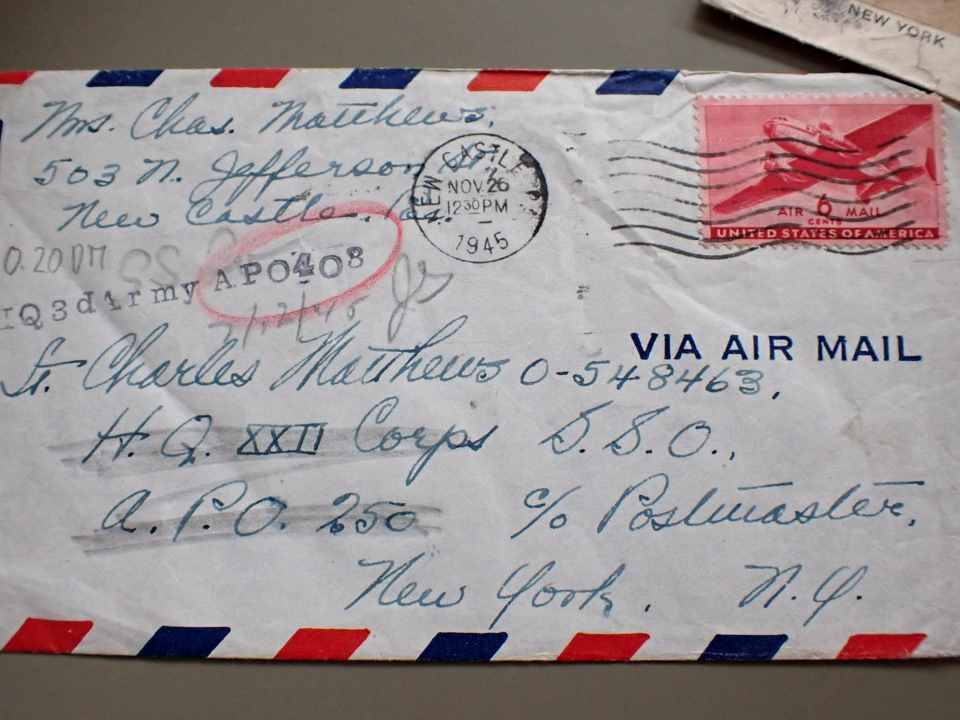 NEW YORK
Mrs. Chas. Matthews.
503 N. Jefferson
New Castle. Pa.
NEW CASTLE PA.
NOV 26
12 30 PM
1945
6
AIR MAIL
CENTS
UNITED STATES OF AMERICA
HQ3dArmy APO408
VIA AIR MAIL
Lt. Charles Matthews O-548463,
H. Q. XXII Corps S. S. O.,
A. P. O. 250 c/o Postmaster,
New York. N. Y.